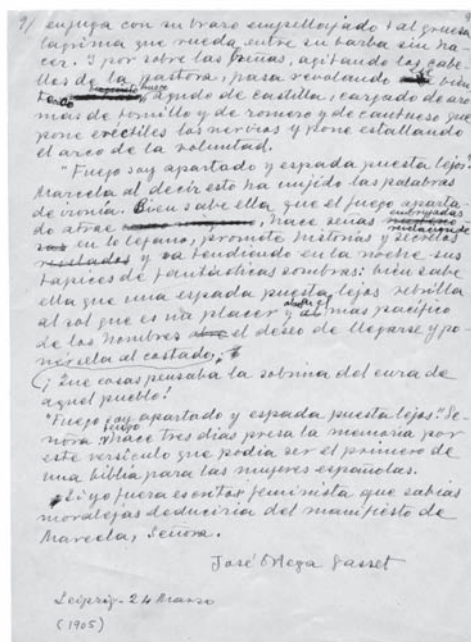 9/ enjuga con su brazo empellojado tal gruesa
lagrima que rueda entre su barba sin na
cer. I por sobre las breñas, agitando los cabe-
llos de la pastora, pasa revolando el vien
to agudo de castilla, cargado de aro
mas de tomillo y de romero y de cantueso que
pone eréctiles los nervios y pone estallando
el arco de la voluntad.
"Fuego soy apartado y espada puesta lejos"
Marcela al decir esto ha unjido las palabras
de ironía. Bien sabe ella que el fuego aparta-
do atrae, hace señas
embrujadas
en lo lejano, promete historias y secretos
y va tendiendo en la noche sus
tapices de fantásticas sombras: bien sabe
ella que una espada puesta lejos rebrilla
al sol que es na placer y al mas pacífico
de los hombres el deseo de llegarse y po-
nersela al costado.
¡Que cosas pensaba la sobrina del cura de
aquel pueblo!
"Fuego soy apartado y espada puesta lejos." Se-
ñora: tengo hace tres dias presa la memoria por
este versículo que podia ser el primero de
una biblia para las mujeres españolas.
Si yo fuera escritor feminista que sabias
moralejas deduciria del manifiesto de
Marcela, Señora.
José Ortega Gasset
Leipzig - 24 Marzo
(1905)